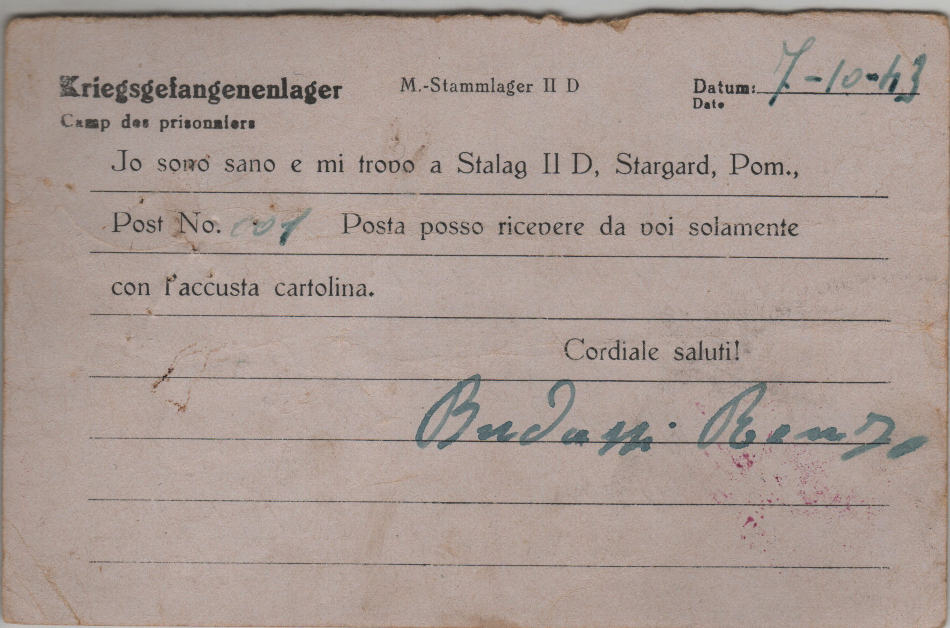 Kriegsgefangenenlager M.-Stammlager II D Datum: 7-10-43
Camp des prisonniers Date
Jo sono sano e mi trovo a Stalag II D, Stargard, Pom.,
Post No. 001 Posta posso ricevere da voi solamente
con l'accusta cartolina.
Cordiale saluti!
Budassi Renzo